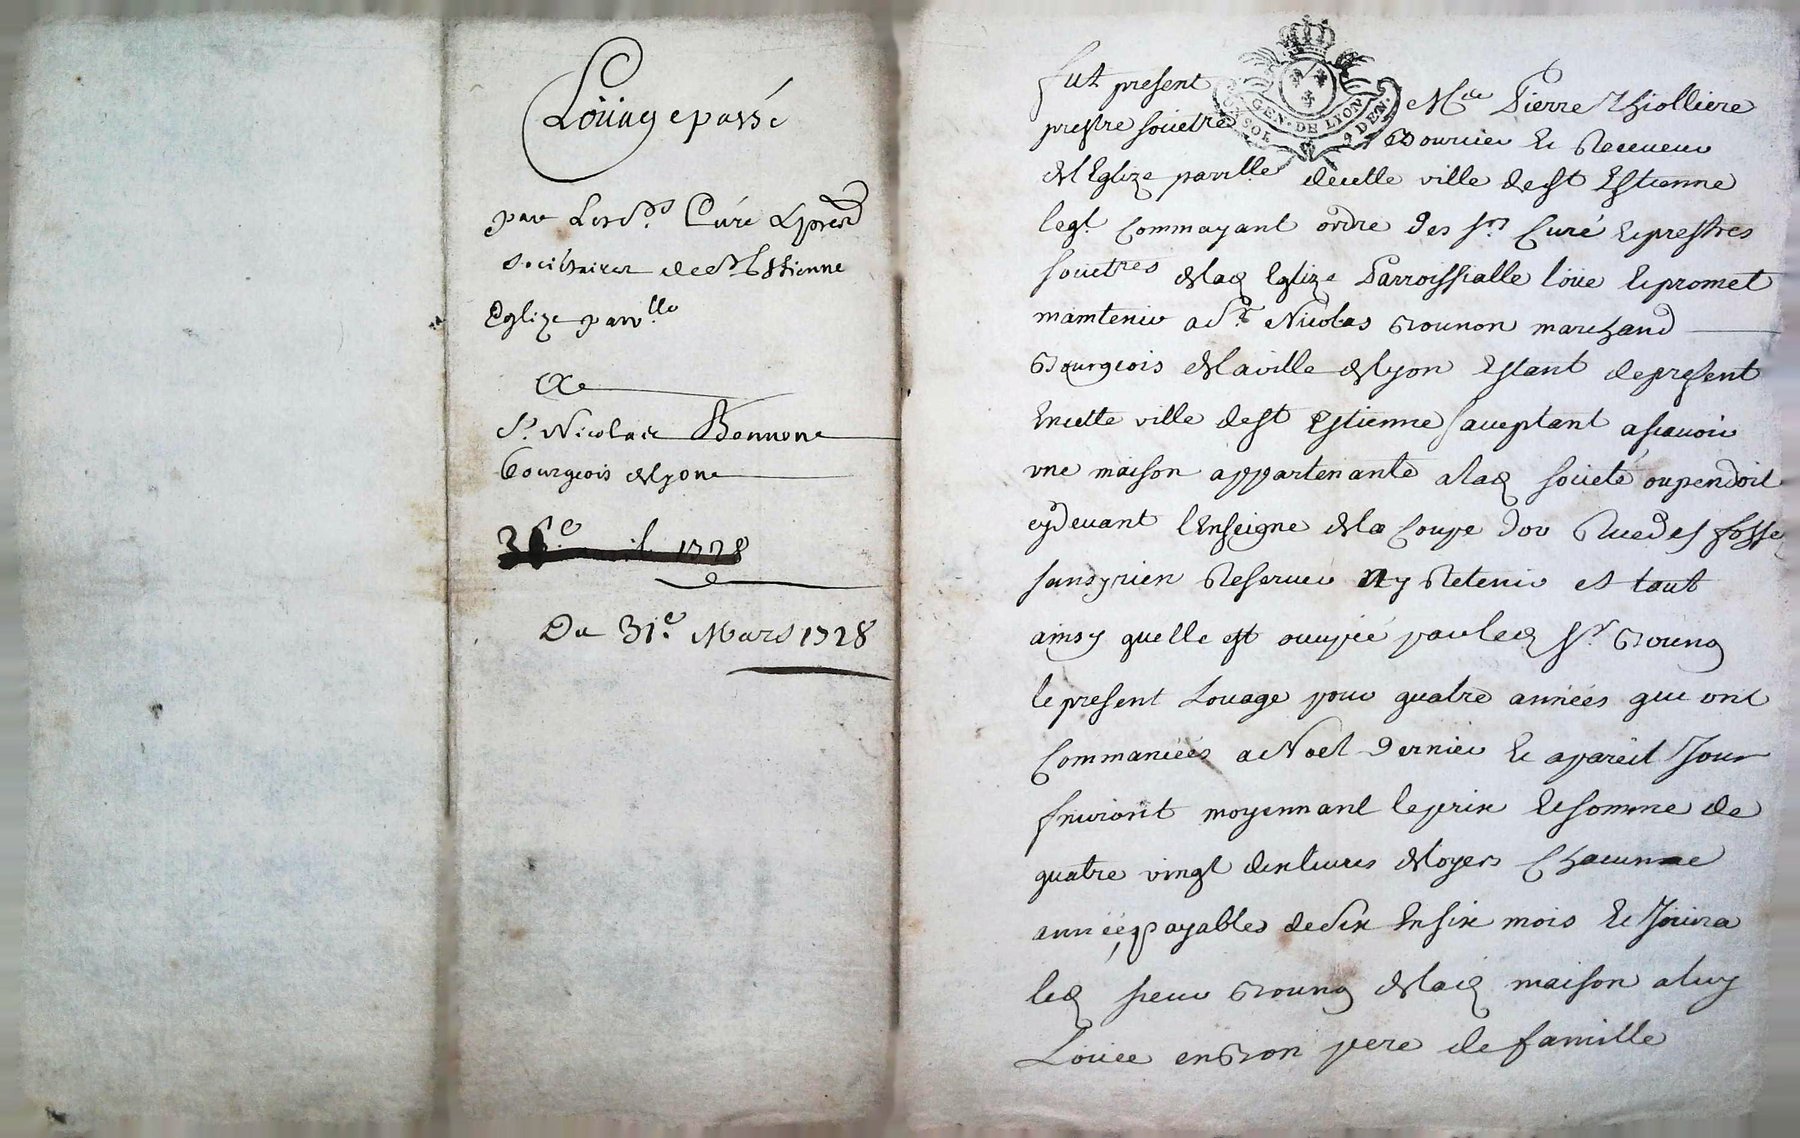 Loüage passé
par Les srs Curé & prestres
sociétaires de st Estienne
Eglize parrlle
A
Sr Nicolas Bonnono
bourgeois de Lyon
1728
Du 31e Mars 1728
GEN. DE LYON
SOL 4 DEN.
fut present Mre Pierre Thiolliere
prestre societtre Boursier Et Receueur
de l'Eglize parrlle de cette ville de st Estienne
leql Commayant ordre des srs Curé Et prestres
societtres de lad Eglize Parroissialle loüe Et promet
maintenir a sr Nicolas Bounon marchand
Bourgeois de la ville de Lyon Estant de present
En cette ville de st Estienne acceptant ascauoir
vne maison appartenante a lad societé ou pendoit
cydeuant l'Enseigne de la Coupe dor Rue des fosses
sans y rien Reseruer ny Retenir et tout
ainsy quelle est occupée par led sr Bouno
le present Louage pour quatre années qui ont
Commancées a Noel dernier Et a pareil Jour
finiront moyennant le prix Et somme de
quatre vingt dix liures de loyers Chacunne
année payables de six En six mois Et Jouira
led sieur Bouno de lad maison a luy
Loüée en Bon pere de famille